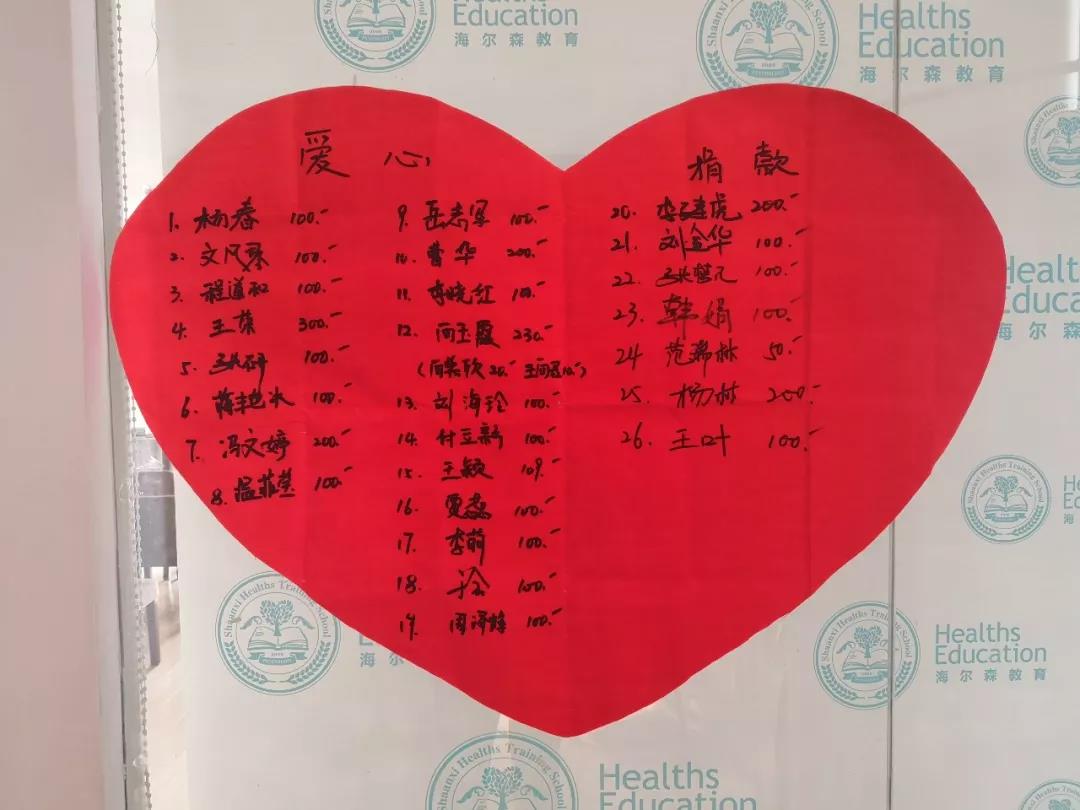 Healths
Education
海尔森教育
Shaanxi Healths Training School
Healths
Education
海尔森教育
爱心 捐款
1. 杨春 100.-
2. 文凤琴 100.-
3. 程道和 100.-
4. 王葉 300.-
5. 张研 100.-
6. 蒋艳水 100.-
7. 冯文婷 200.-
8. 温菲莹 100.-
9. 岳志军 100.-
10. 曹华 200.-
11. 李晓红 100.-
12. 向玉霞 230.-
13. 刘海玲 100.-
14. 付立新 100.-
15. 王颖 109.-
16. 100.-
17. 李萌 100.-
18. 100.-
19. 周 100.-
20. 李建虎 200.-
21. 刘金华 100.-
22. 张慧元 100.-
23. 韩娟 100.-
24 范瑞林 50.-
25. 杨树 200-
26. 王叶 100.-
Healths
Education
海尔森教育
Shaanxi Healths Training School
Shaanxi Healths Training School
海尔森教育
Shaanxi Healths Training School
Healths
Education
海尔森教育
Shaanxi Healths Training School
Healths
Education